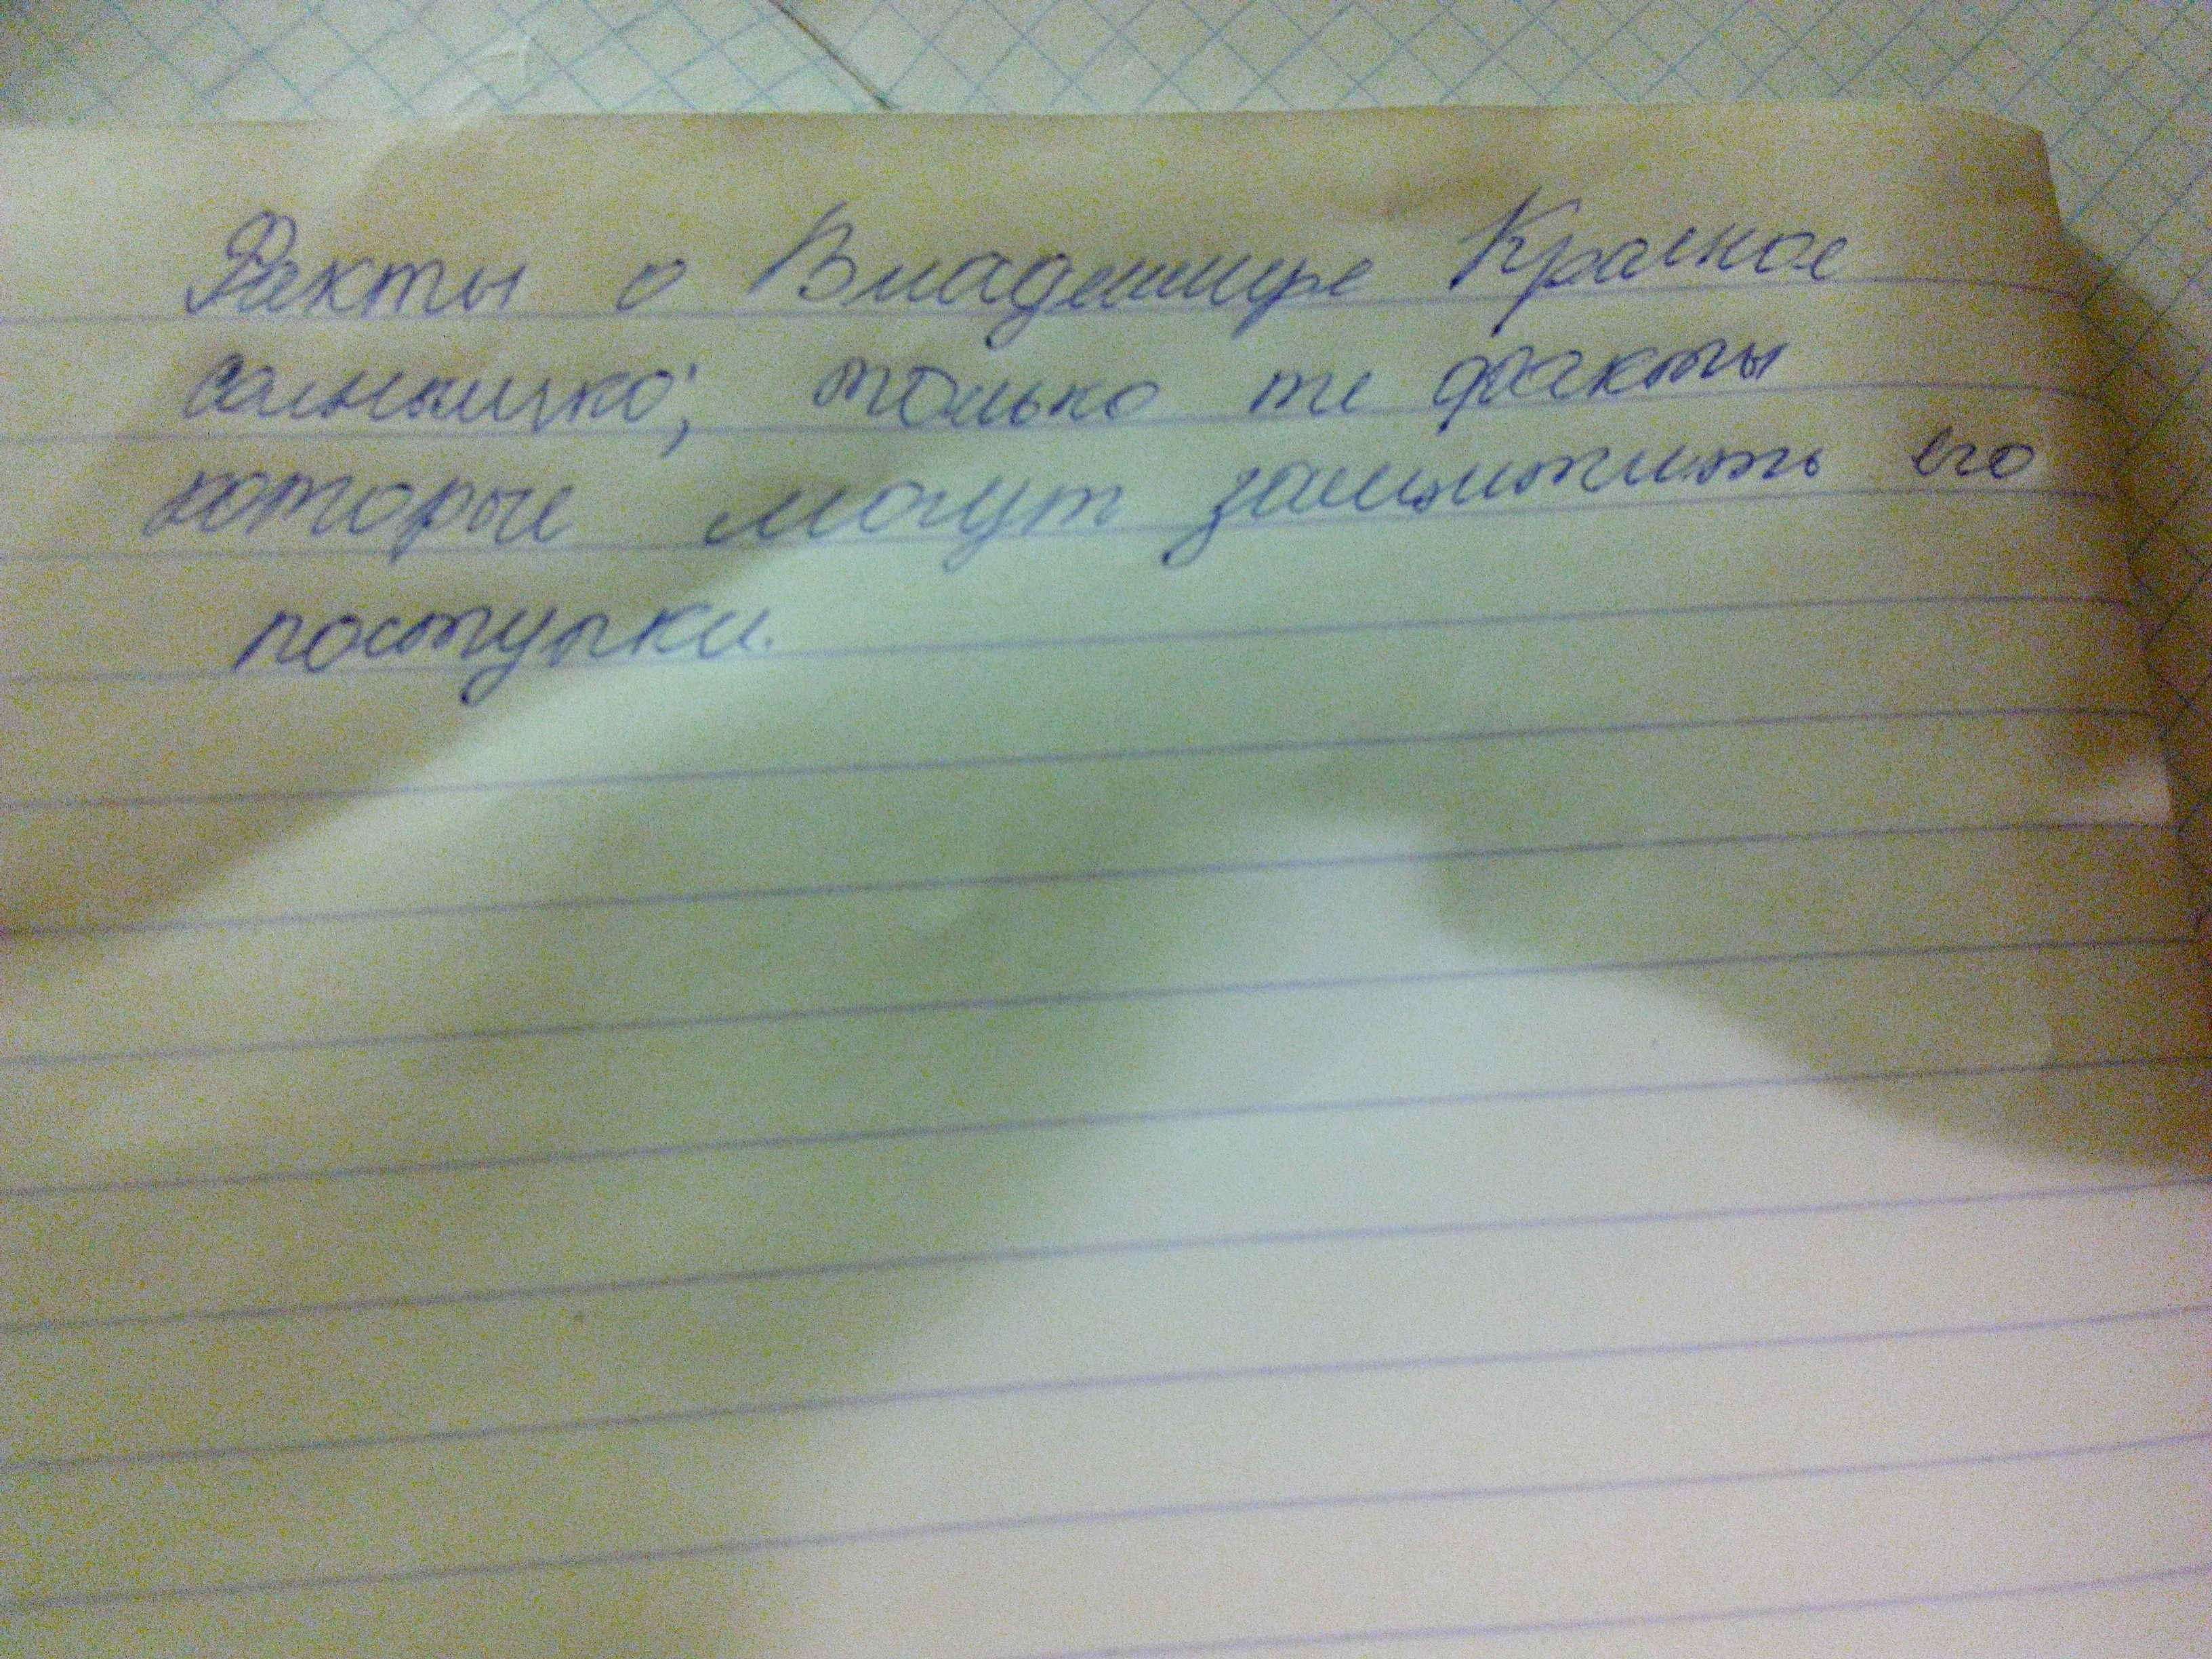 Факты о Владимире Красное
солнышко; только те факты
которые могут защитить его
поступки.